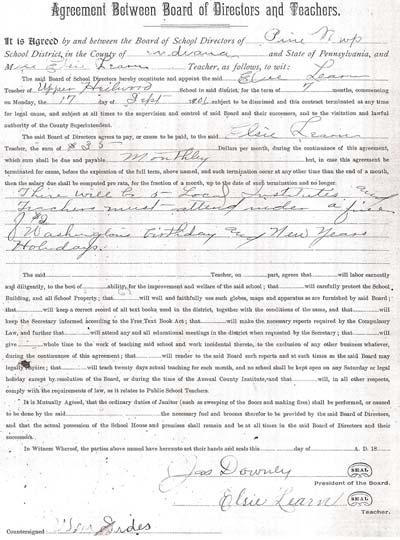 Agreement Between Board of Directors and Teachers.
It is Agreed by and between the Board of School Directors of Pine Twp
School District, in the County of Indiana and State of Pennsylvania, and
Miss Elsie Learn Teacher, as follows, to wit:
The said Board of School Directors hereby constitute and appoint the said Elsie Learn
Teacher of Upper Heilwood School in said district, for the term of 7 months, commencing
on Monday, the 17 day of Sept 1901, subject to be dismissed and this contract terminated at any
time for legal cause, and subject at all times to the supervision and control of said Board and their successors, and to the visitation and lawful
authority of the County Superintendent.
The said Board of Directors agrees to pay, or cause to be paid, to the said Elsie Learn
Teacher, the sum of $35 Dollars per month, during the continuance of this agreement,
which sum shall be due and payable Monthly but, in case this agreement be
terminated for cause, before the expiration of the full term, above named, and such termination occur at any other time than the end of a month,
then the salary due shall be computed pro rata, for the fraction of a month, up to the date of said termination and no longer.
There will be 5 Local Institutes any
Teachers must attend under a fine
of $2
Washingtons birthday any New Years
Holidays.
The said Teacher, on part, agrees that will labor earnestly
and diligently, to the best of ability, for the improvement and welfare of the said school; that will carefully protect the School
Building, and all School Property; that will well and faithfully use such globes, maps and apparatus as are furnished by said Board;
that will keep a correct record of all text books used in the district, together with the conditions of the same, and that will
keep the Secretary informed according to the Free Text Book Act; that will make the necessary reports required by the Compulsory
Law, and further that will attend any and all educational meetings in the district when requested by the Secretary; that will
give whole time to the work of teaching said school and work incidental thereto, to the exclusion of any other business whatever,
during the continuance of this agreement; that will render to the said Board such reports and at such times as the said Board may
legally require; that will teach twenty days actual teaching for each month, and no school shall be kept open on any Saturday or legal
holiday except by resolution of the Board, or during the time of the Annual County Institute, and that will, in all other respects,
comply with the requirements of law, as it relates to Public School Teachers.
It is Mutually Agreed, that the ordinary duties of Janitor (such as sweeping of the floors and making fires) shall be performed, or caused
to be done by the said the necessary fuel and brooms therefor to be provided by the said Board of Directors,
and that the actual possession of the School House and premises shall remain and be at all times in the said Board of Directors and their
successors.
In Witness Whereof, the Parties above named have hereunto set their hands and seals this day of A. D. 18
Jas Downey SEAL
President of the Board.
Elsie Learn SEAL
Teacher.
Countersigned